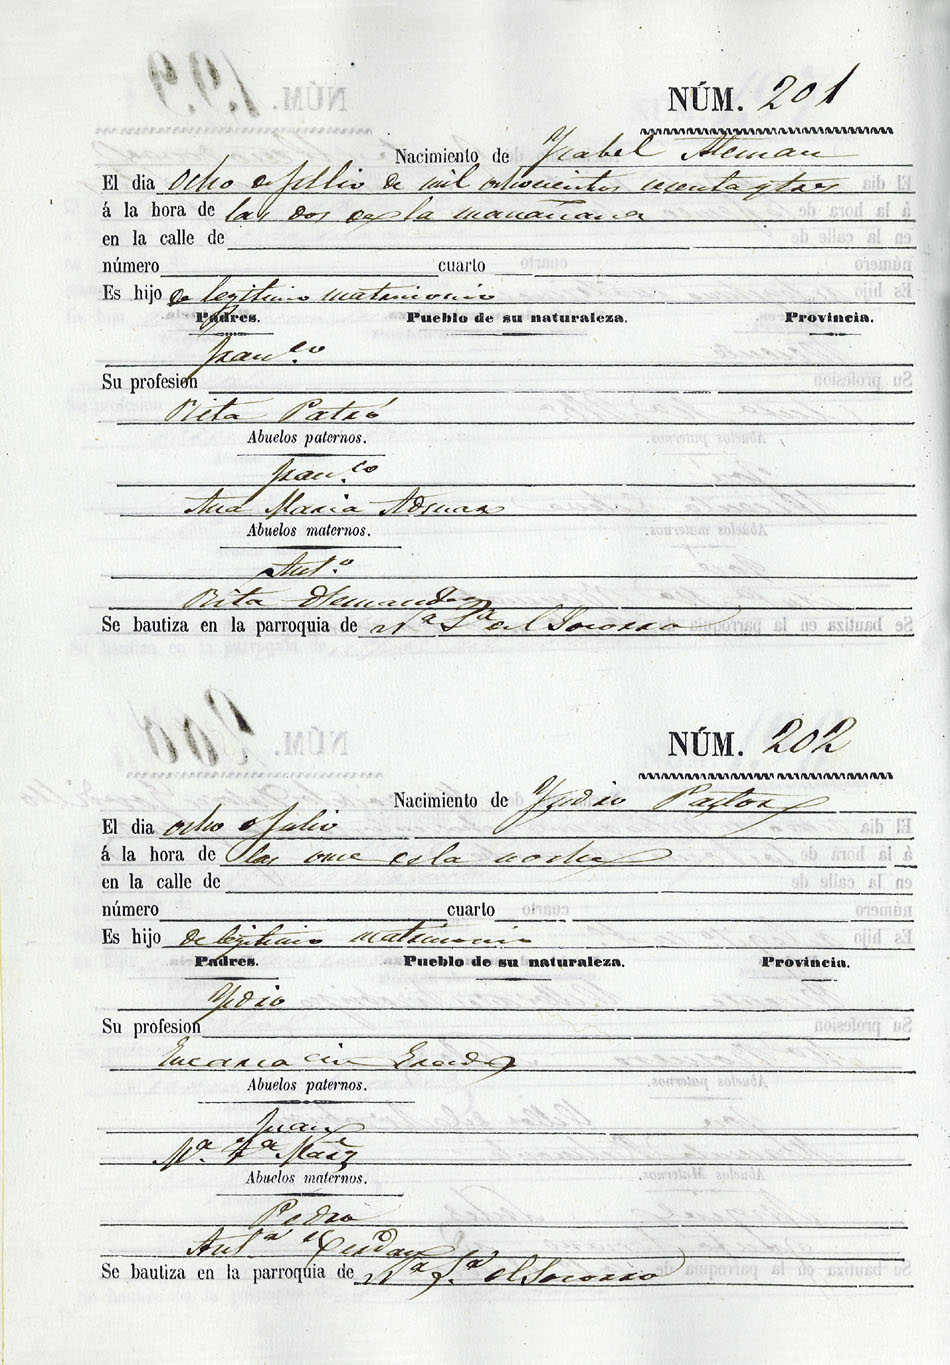 NÚM. 201
Nacimiento de Ysabel Aleman
El dia Ocho de Jullio de mil ochocientos sesenta y tres
á la hora de las dos de la manañana
en la calle de
número cuarto
Es hijo de legitimo matrimonio
Padres. Pueblo de su naturaleza. Provincia.
Fran.co
Su profesion
Rita Patró
Abuelos paternos.
Fran.co
Ana Maria
Abuelos maternos.
Ant.o
Rita Hernandez
Se bautiza en la parroquia de Na Sa del Socorro
NÚM. 202
Nacimiento de Ysidro Pastor
El dia ocho de Julio
á la hora de las once de la noche
en la calle de
número cuarto
Es hijo de legitimo matrimonio
Padres. Pueblo de su naturaleza. Provincia.
Ysidro
Su profesion
Encarnacion
Abuelos paternos.
Juan
Ma.
Abuelos maternos.
Pedro
Anta
Se bautiza en la parroquia de Na Sa del Socorro